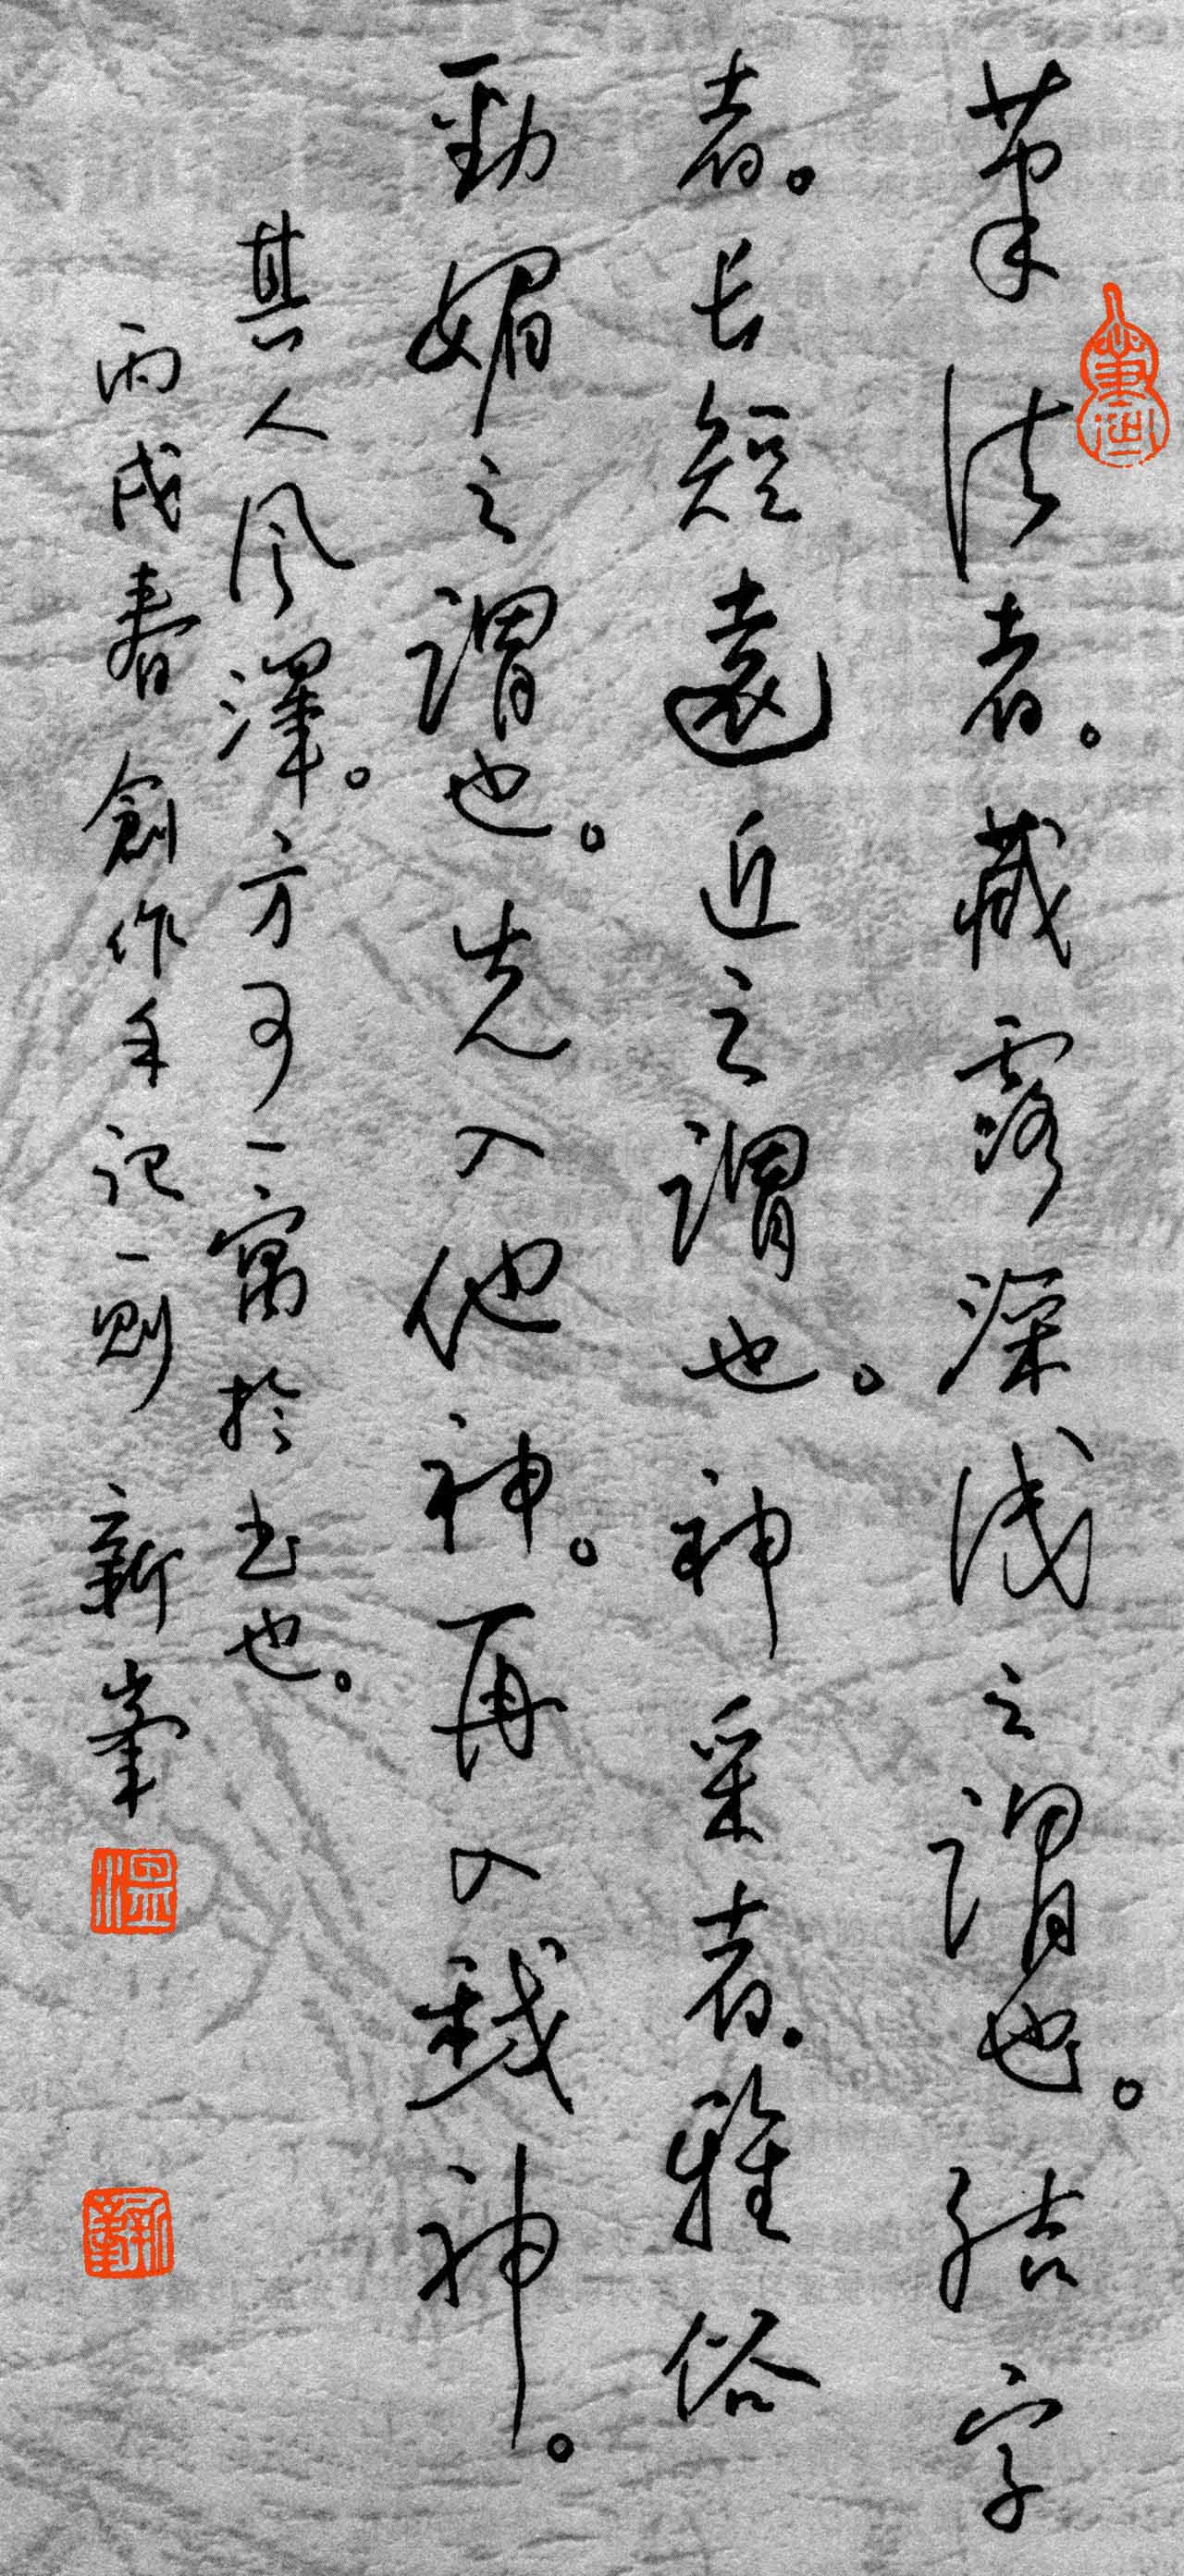 筆法者。藏露深浅之謂也。結字
者。长短遠近之謂也。神采者。雅俗
勁媚之謂也。先入他神。再入我神。
其人风澤。方可一寓於书也。
丙戌春創作手记一则 新峯
温